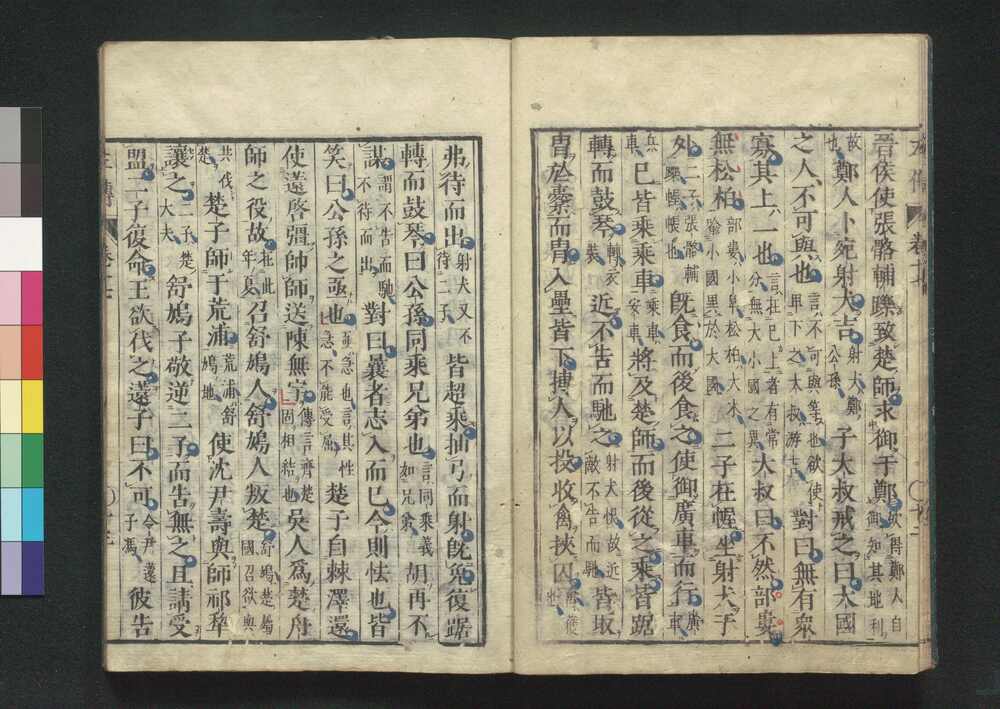 晉侯使張骼輔躒致楚師求御于鄭欲得鄭人自御知其地利
故也鄭人卜宛射犬吉射犬鄭公孫子大叔戒之曰大國
之人不可與也言不可與等也欲使卑下之大叔游吉對曰無有衆
寡其上一也言在已上者有常分無大小國之異大叔曰不然部婁
無松柏部婁小阜松柏大木喻小國異於大國二子在幄坐射犬于
外二子張骼輔躒幄帳也既食而後食之使御廣車而行廣車
兵車已皆乘乘車乘車安車將及楚師而後從之乘皆踞
轉而鼓琴轉衣裝近不告而馳之射犬恨故近敵不告而馳皆取
冑於櫜而冑入壘皆下搏人以投收禽挾囚
弗待而出射犬又不待二子皆超乘抽弓而射既免復踞
轉而鼓琴曰公孫同乘兄弟也言同乘義如兄弟胡再不
謀謂不告而馳不待而出對曰曩者志入而已今則怯也皆
笑曰公孫之亟也亟急也言其性急不能受屈楚子自棘澤還
使薳啓彊帥師送陳無宇傳言齊楚固相結也吳人爲楚舟
師之役故在此年夏召舒鳩人舒鳩人叛楚舒鳩楚屬國召欲與
共伐楚楚子師于荒浦荒浦舒鳩地使沈尹壽與師祁犁
讓之二子楚大夫舒鳩子敬逆二子而告無之且請受
盟二子復命王欲伐之薳子曰不可令尹薳子馮彼告